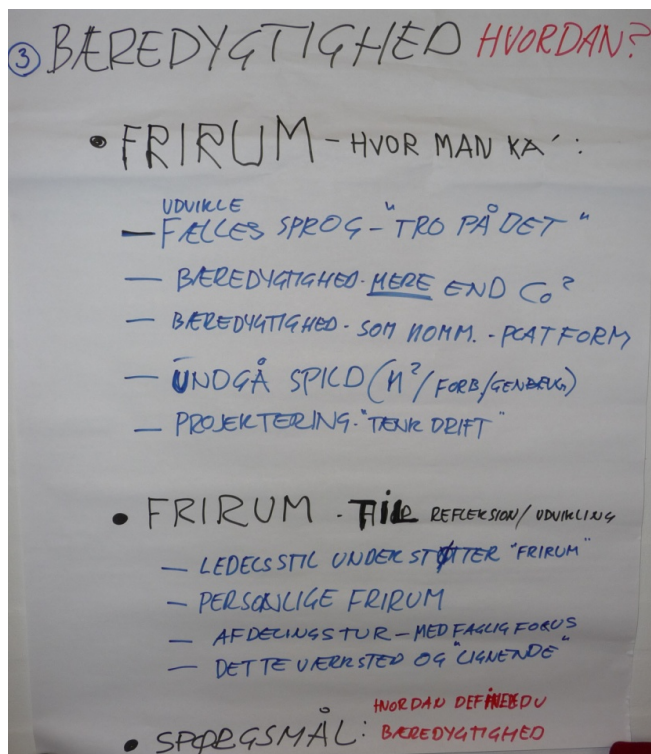 ③ BÆREDYGTIGHED HVORDAN?
• FRIRUM - HVOR MAN KA´:
UDVIKLE
— FÆLLES SPROG - "TRO PÅ DET"
— BÆREDYGTIGHED · MERE END CO²
— BÆREDYGTIGHED · SOM KOMM. - PLATFORM
— UNDGÅ SPILD (M²/FORB/GENBRUG)
— PROJEKTERING · "TÆNK DRIFT"
• FRIRUM - TIL REFLEKSION/UDVIKLING
— LEDELSSTIL UNDERSTØTTER "FRIRUM"
— PERSONLIGE FRIRUM
— AFDELINGSTUR - MED FAGLIG FOKUS
— DETTE VÆRKSTED OG "LIGNENDE"
• SPØRGSMÅL: HVORDAN DU
BÆREDYGTIGHED